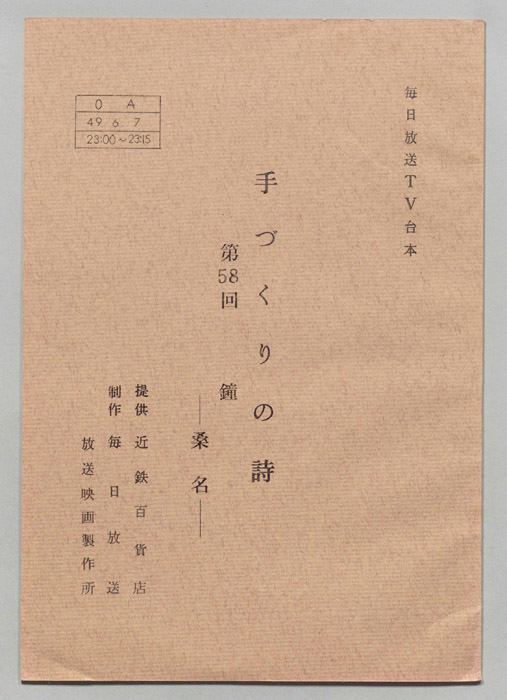 毎日放送TV台本
手づくりの詩
第58回 鐘
―桑名―
提供 近鉄百貨店
制作 毎日放送
放送映画製作所
O A
49 6 7
23:00~23:15